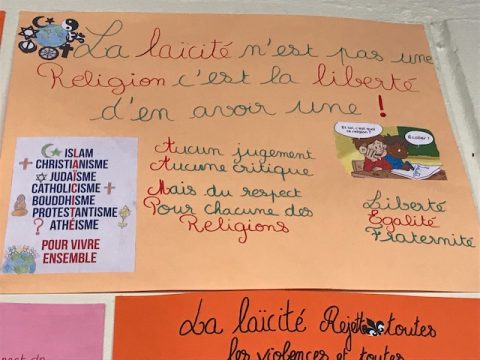 La laïcité n'est pas une
Religion c'est la liberté
d'en avoir une !
ISLAM
CHRISTIANISME
JUDAÏSME
CATHOLICISME
BOUDDHISME
PROTESTANTISME
? ATHÉISME
POUR VIVRE
ENSEMBLE
Aucun jugement
Aucune critique
Mais du respect
Pour chacune des
Religions
Et toi, c'est quoi
ta religion ?
Écolier !
Liberté
Egalité
Fraternité
La laïcité Rejette toutes
les violences et toutes